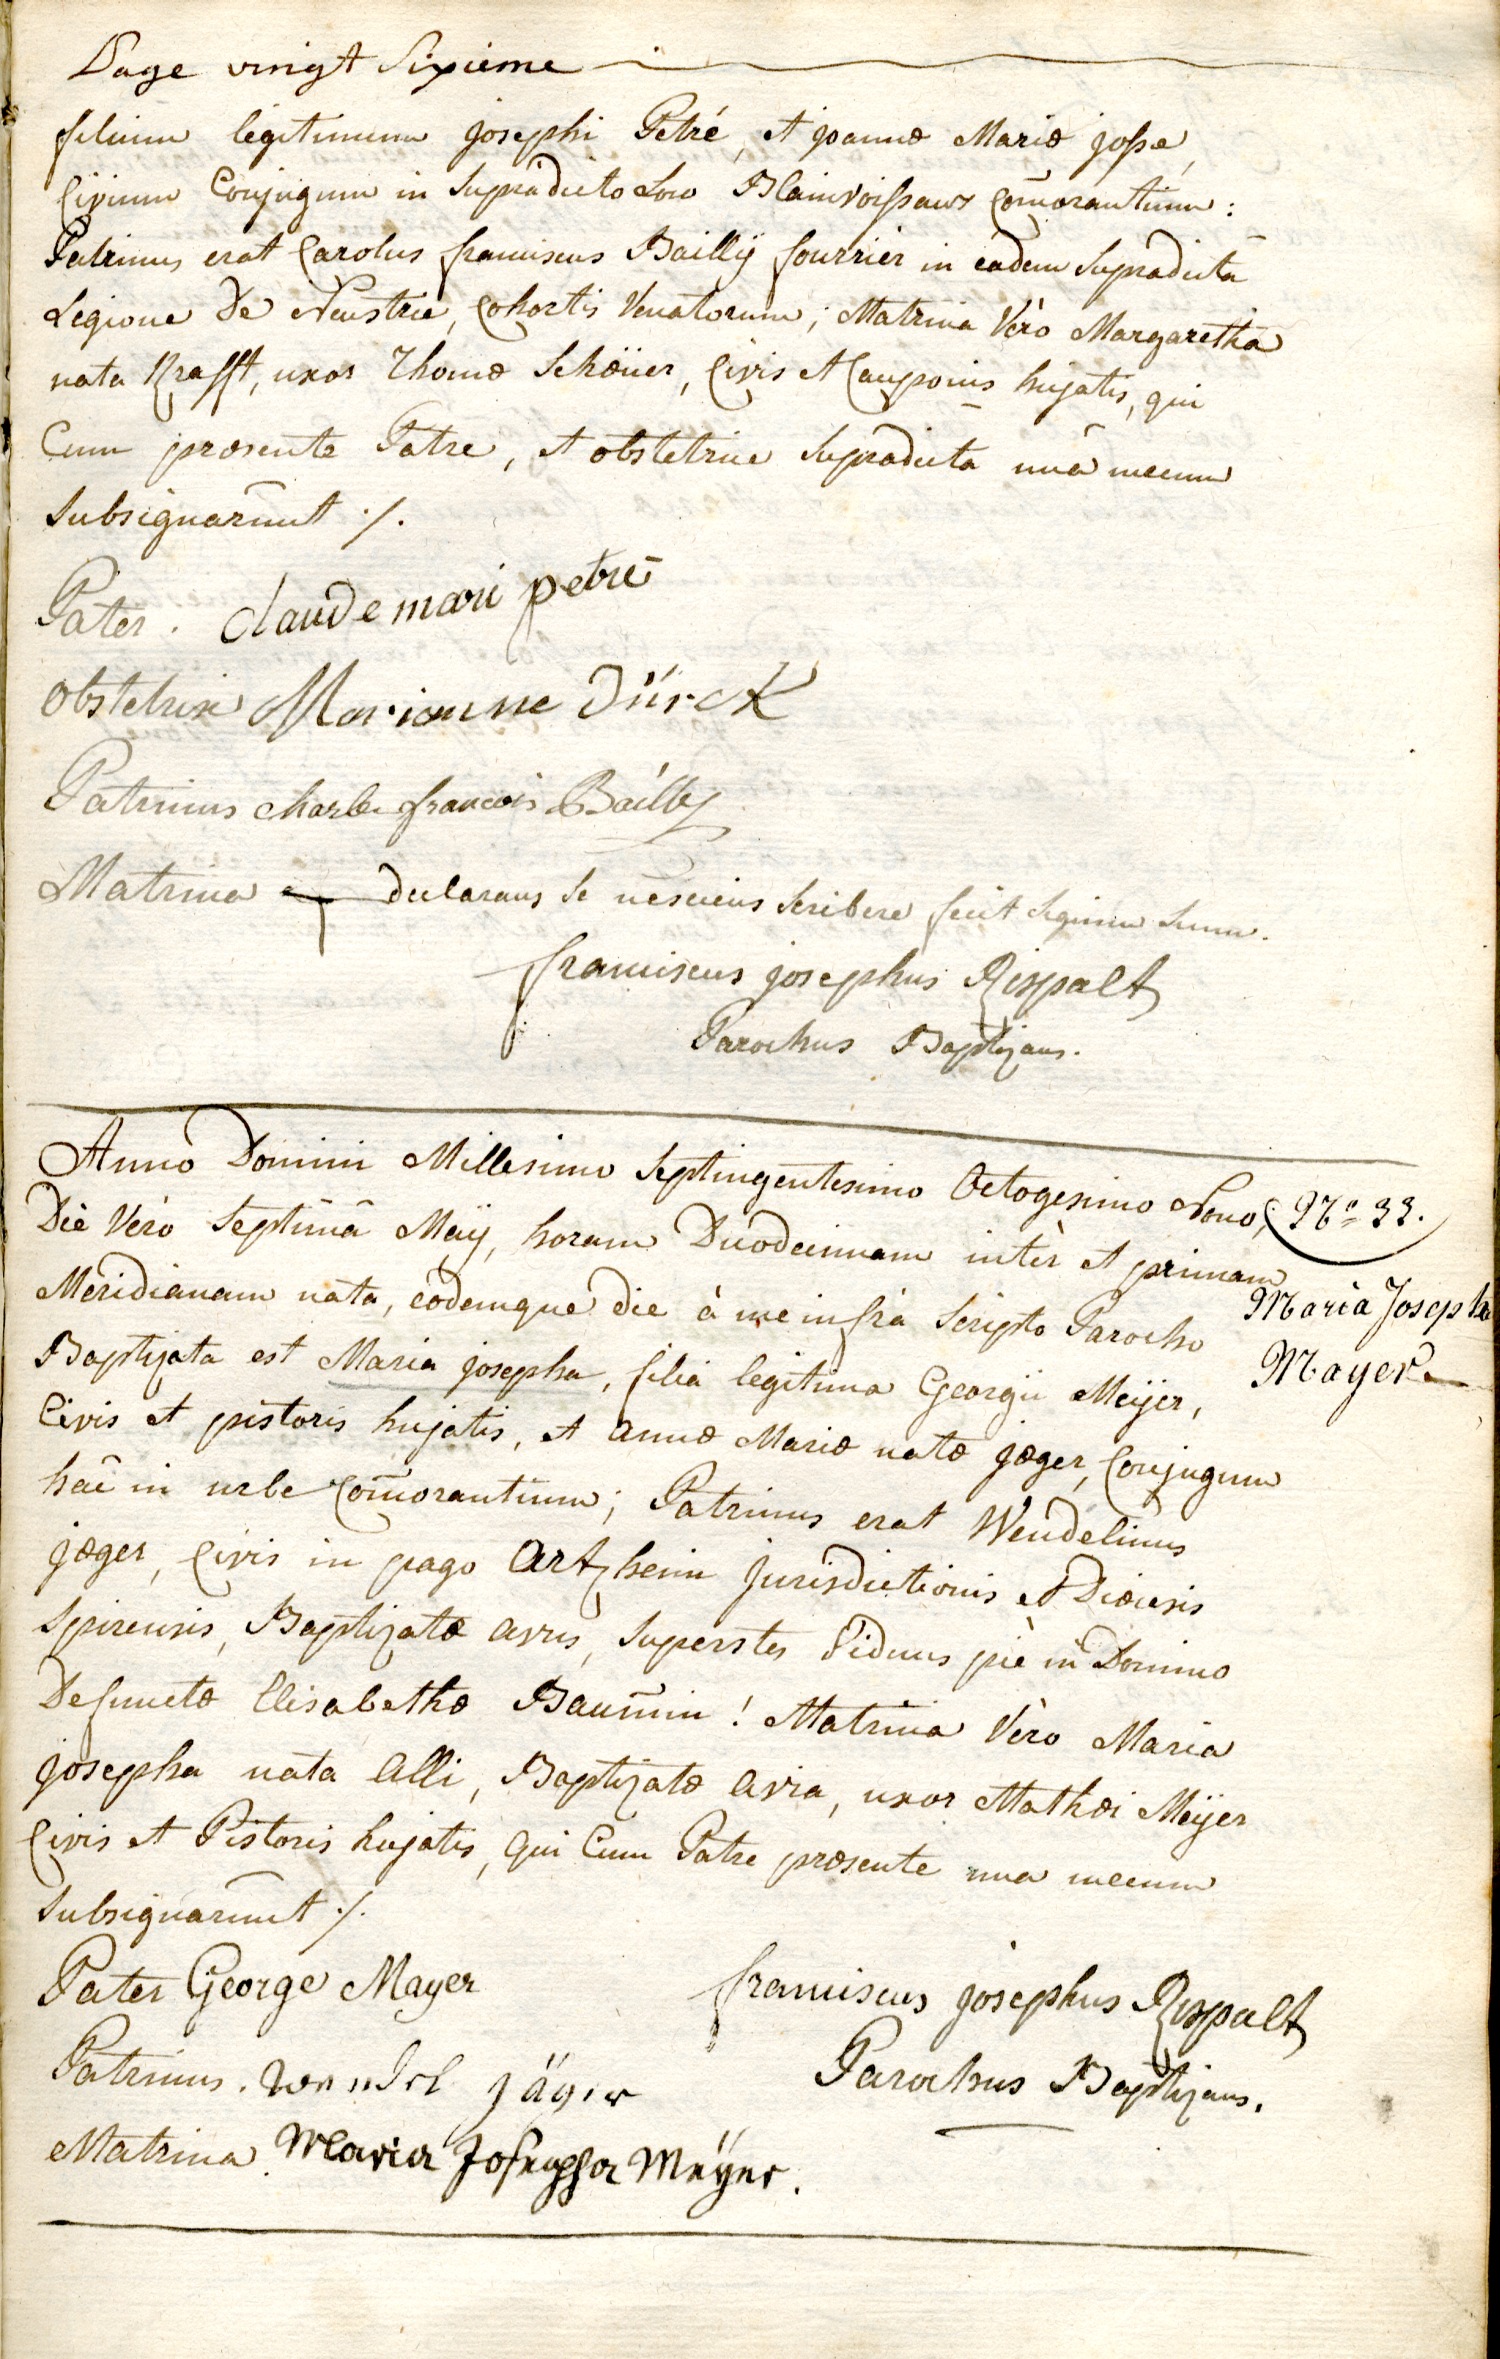 Page vingt Sixieme
filium legitimum josephi Petré, et joannæ Mariæ josse,
Civium Conjugum in Supradicto Loco Blainvoissaux Com̄orantium:
Patrinus erat Carolus franciscus Baillÿ fourrier in eadem Supradictâ
Legione De Neustrie, Cohortis Venatorum; Matrina Vèro Margaretha
nata Krafft, uxor Thomæ Schöüer, Civis et Cauponis hujatis, qui
Cum præsente Patre, et obstetrice Supradicta unâ mecum
Subsignarūnt ./.
Pater. Claude mari petré
obstetrix Marianne Dürck
Patrinus Charle francois Bailly
Matrina + declarans se nesciens scribere fecit signum suum.
franciscus josephus Rispalt
Parochus Baptizans.
Anno Domini Millesimo Septingentesimo Octogesimo Nono,
Die Vero Septimâ Maij, horam Duodecimam inter et primam
Meridianam nata, eodemque die à me infrà Scripto Parocho
Baptizata est Maria josepha, filia legitima Georgii Meÿer,
Civis et pistoris hujatis, et annæ Mariæ natæ jæger, Conjugum
hac in urbe Com̄orantium; Patrinus erat Wendelinus
jæger, Civis in pago Artzheim Jurisdictionis et Diœcesis
Spirensis, Baptizatæ avus, Superstes Viduus piè in Domino
Defunctæ Elisabethæ Baum̄in! Matrina Vèro Maria
josepha nata Alli, Baptizatæ avia, uxor Mathæi Meÿer
Civis et Pistoris hujatis, qui Cum Patre præsente una mecum
Subsignarūnt ./.
Nº 33.
Maria Josepha
Mayer
Pater George Mayer
Patrinus. Wendel Jäger
Matrina. Maria Josepha Meÿer.
franciscus josephus Rispalt
Parochus Baptizans.